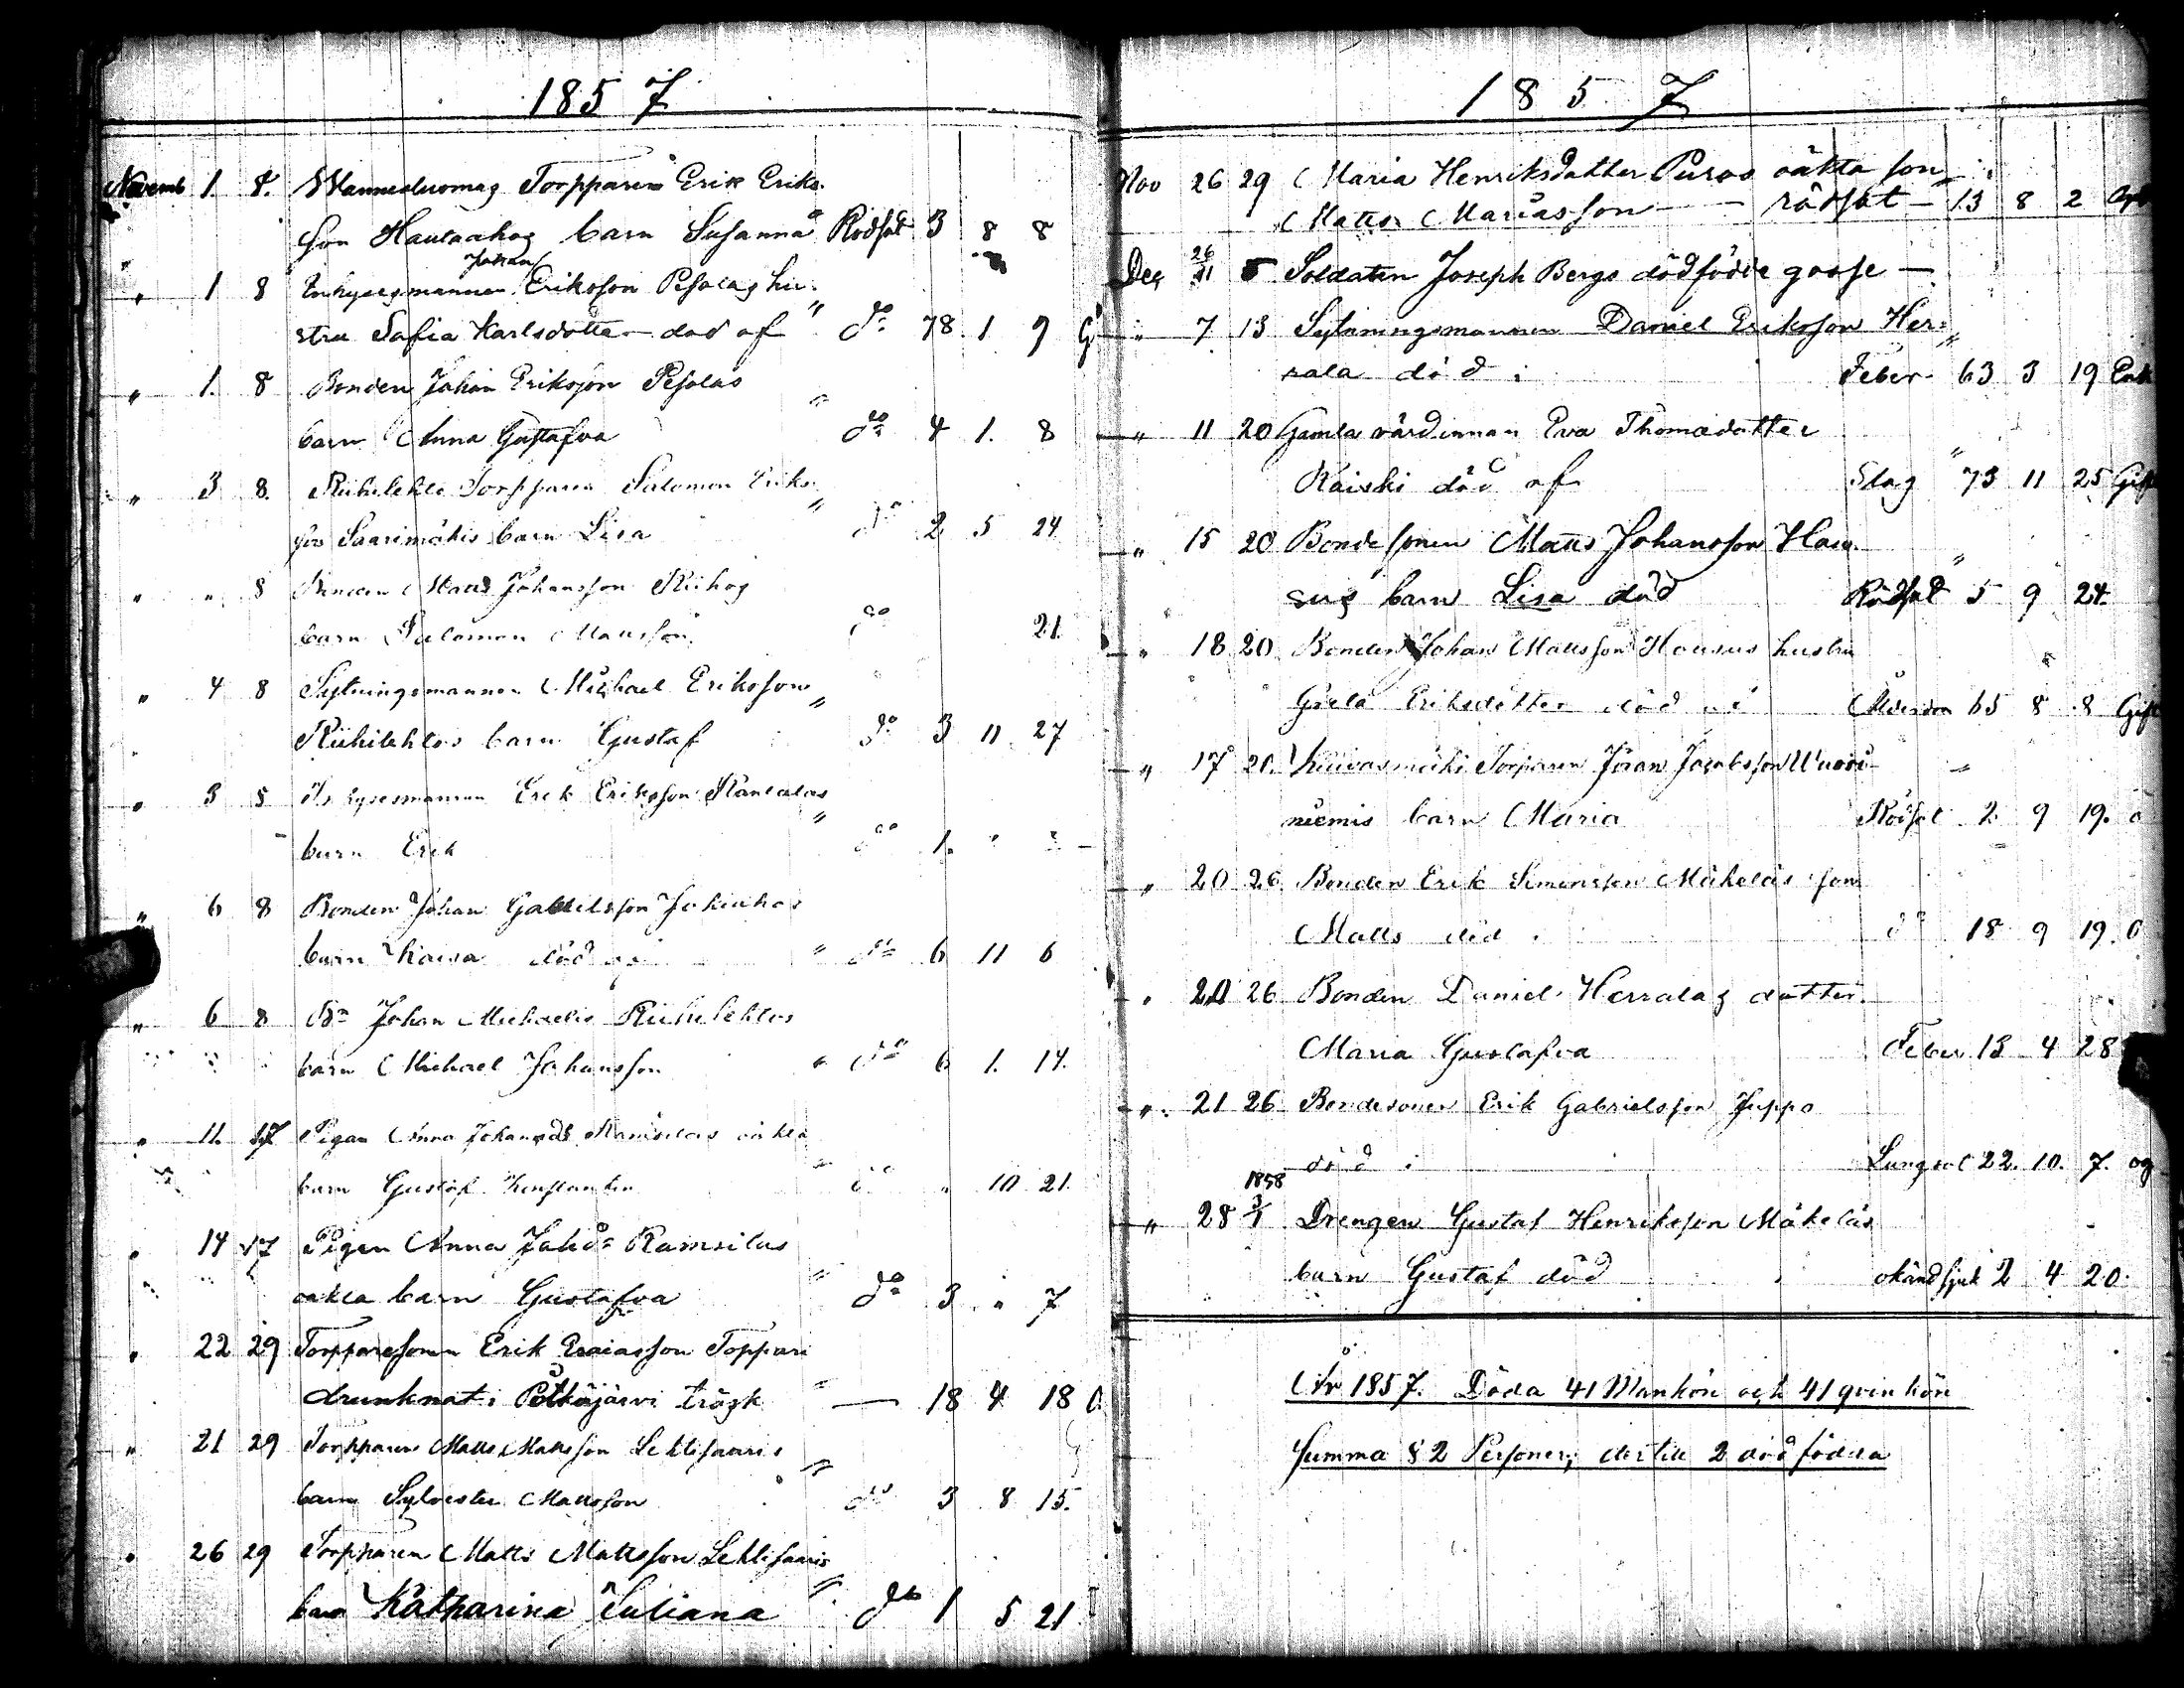 1857
Novemb 1. 8. Torpparen Erik Eriks
son Hautaahog barn Susanna Rödsot 3 8 8
Johan
" 1 8 Inhysesmannen Eriksson Pesolas hu
stru Sofia Karlsdotter död af " do 78. 1 9 G
" 1. 8 Bonden Johan Eriksson Pesolas
barn Anna Gustafva do 4 1. 8
" 3 8. Riihilehto Torpparen Salomon Eriks
son Saarimäkis barn Lisa do 2 5 24
" " 8 Bonden Matts Johansson
barn Salomon Mattsson do 21.
" 4 8 Sytningsmannen Michael Eriksson
Riihilehtos barn Gustaf do 3 11 27
" 3 8 Inhysesmannen Erik Eriksson
barn Erik do 1.
" 6 8 Bonden Johan Gabrielsson
barn Kaisa död " do 6 11 6
" 6 8 Do Johan Michaelis Riihilehtos
barn Michael Johansson " do 6 1. 14.
" 11. 17 Pigan Anna Johansds Ramsilas oäkta
barn Gustaf Konstantin do " 10 21.
" 14 17 Pigan Anna Johds Ramsilas
oäkta barn Gustafva " do 3 " 7
" 22 29 Torpparesonen Erik Esaiasson Toppari
drunknat i Pätkäjärvi träsk " — 18 4 18 O
" 21 29 Torpparen Matts Mattsson Lehtisaaris
barn Sylvester Mattsson do 3 8 15.
" 26 29 Torpparen Matts Mattsson Lehtisaaris
barn Katharina Juliana " do 1 5 21
1857
Nov 26 29 Maria Henriksdotter Puras oäkta son
Matts Mariasson — rödsot — 13 8 2
Dec 26/11 5 Soldaten Joseph Bergs dödfödde gosse —
" 7 13 Sytningsmannen Daniel Eriksson Her
rala död i Feber 63 3 19 Enk
" 11 20 Gamla värdinnan Eva Thomædotter
Kaiski död af Slag 73 11 25 Gift
" 15 20 Bondesonen Matts Johansson Hau
sus barn Lisa död Rödsot 5 9 24.
" 18 20 Bonden Johan Mattsson Hausus hustru
Greta Eriksdotter död af Ålderdom 65 8 8 Gift
" 17 20. Torparen Johan Jacobsson Wuori
niemis barn Maria Rödsot 2 9 19.
" 20 26 Bonden Erik Simonsson Mäkeläs son
Matts död i do 18 9 19. O
" 20 26 Bonden Daniel Herralas dotter
Maria Gustafva Feber 13 4 28
" 21 26 Bondesonen Erik Gabrielsson Juppo
död i Lungsot 22. 10. 7. og
1858
" 28 3/1 Drengen Gustaf Henriksson Mäkeläs
barn Gustaf död okänd sjuk 2 4 20.
År 1857. Döda 41 Mankön och 41 qvinkön
Summa 82 Personer, dertill 2 dödfödda